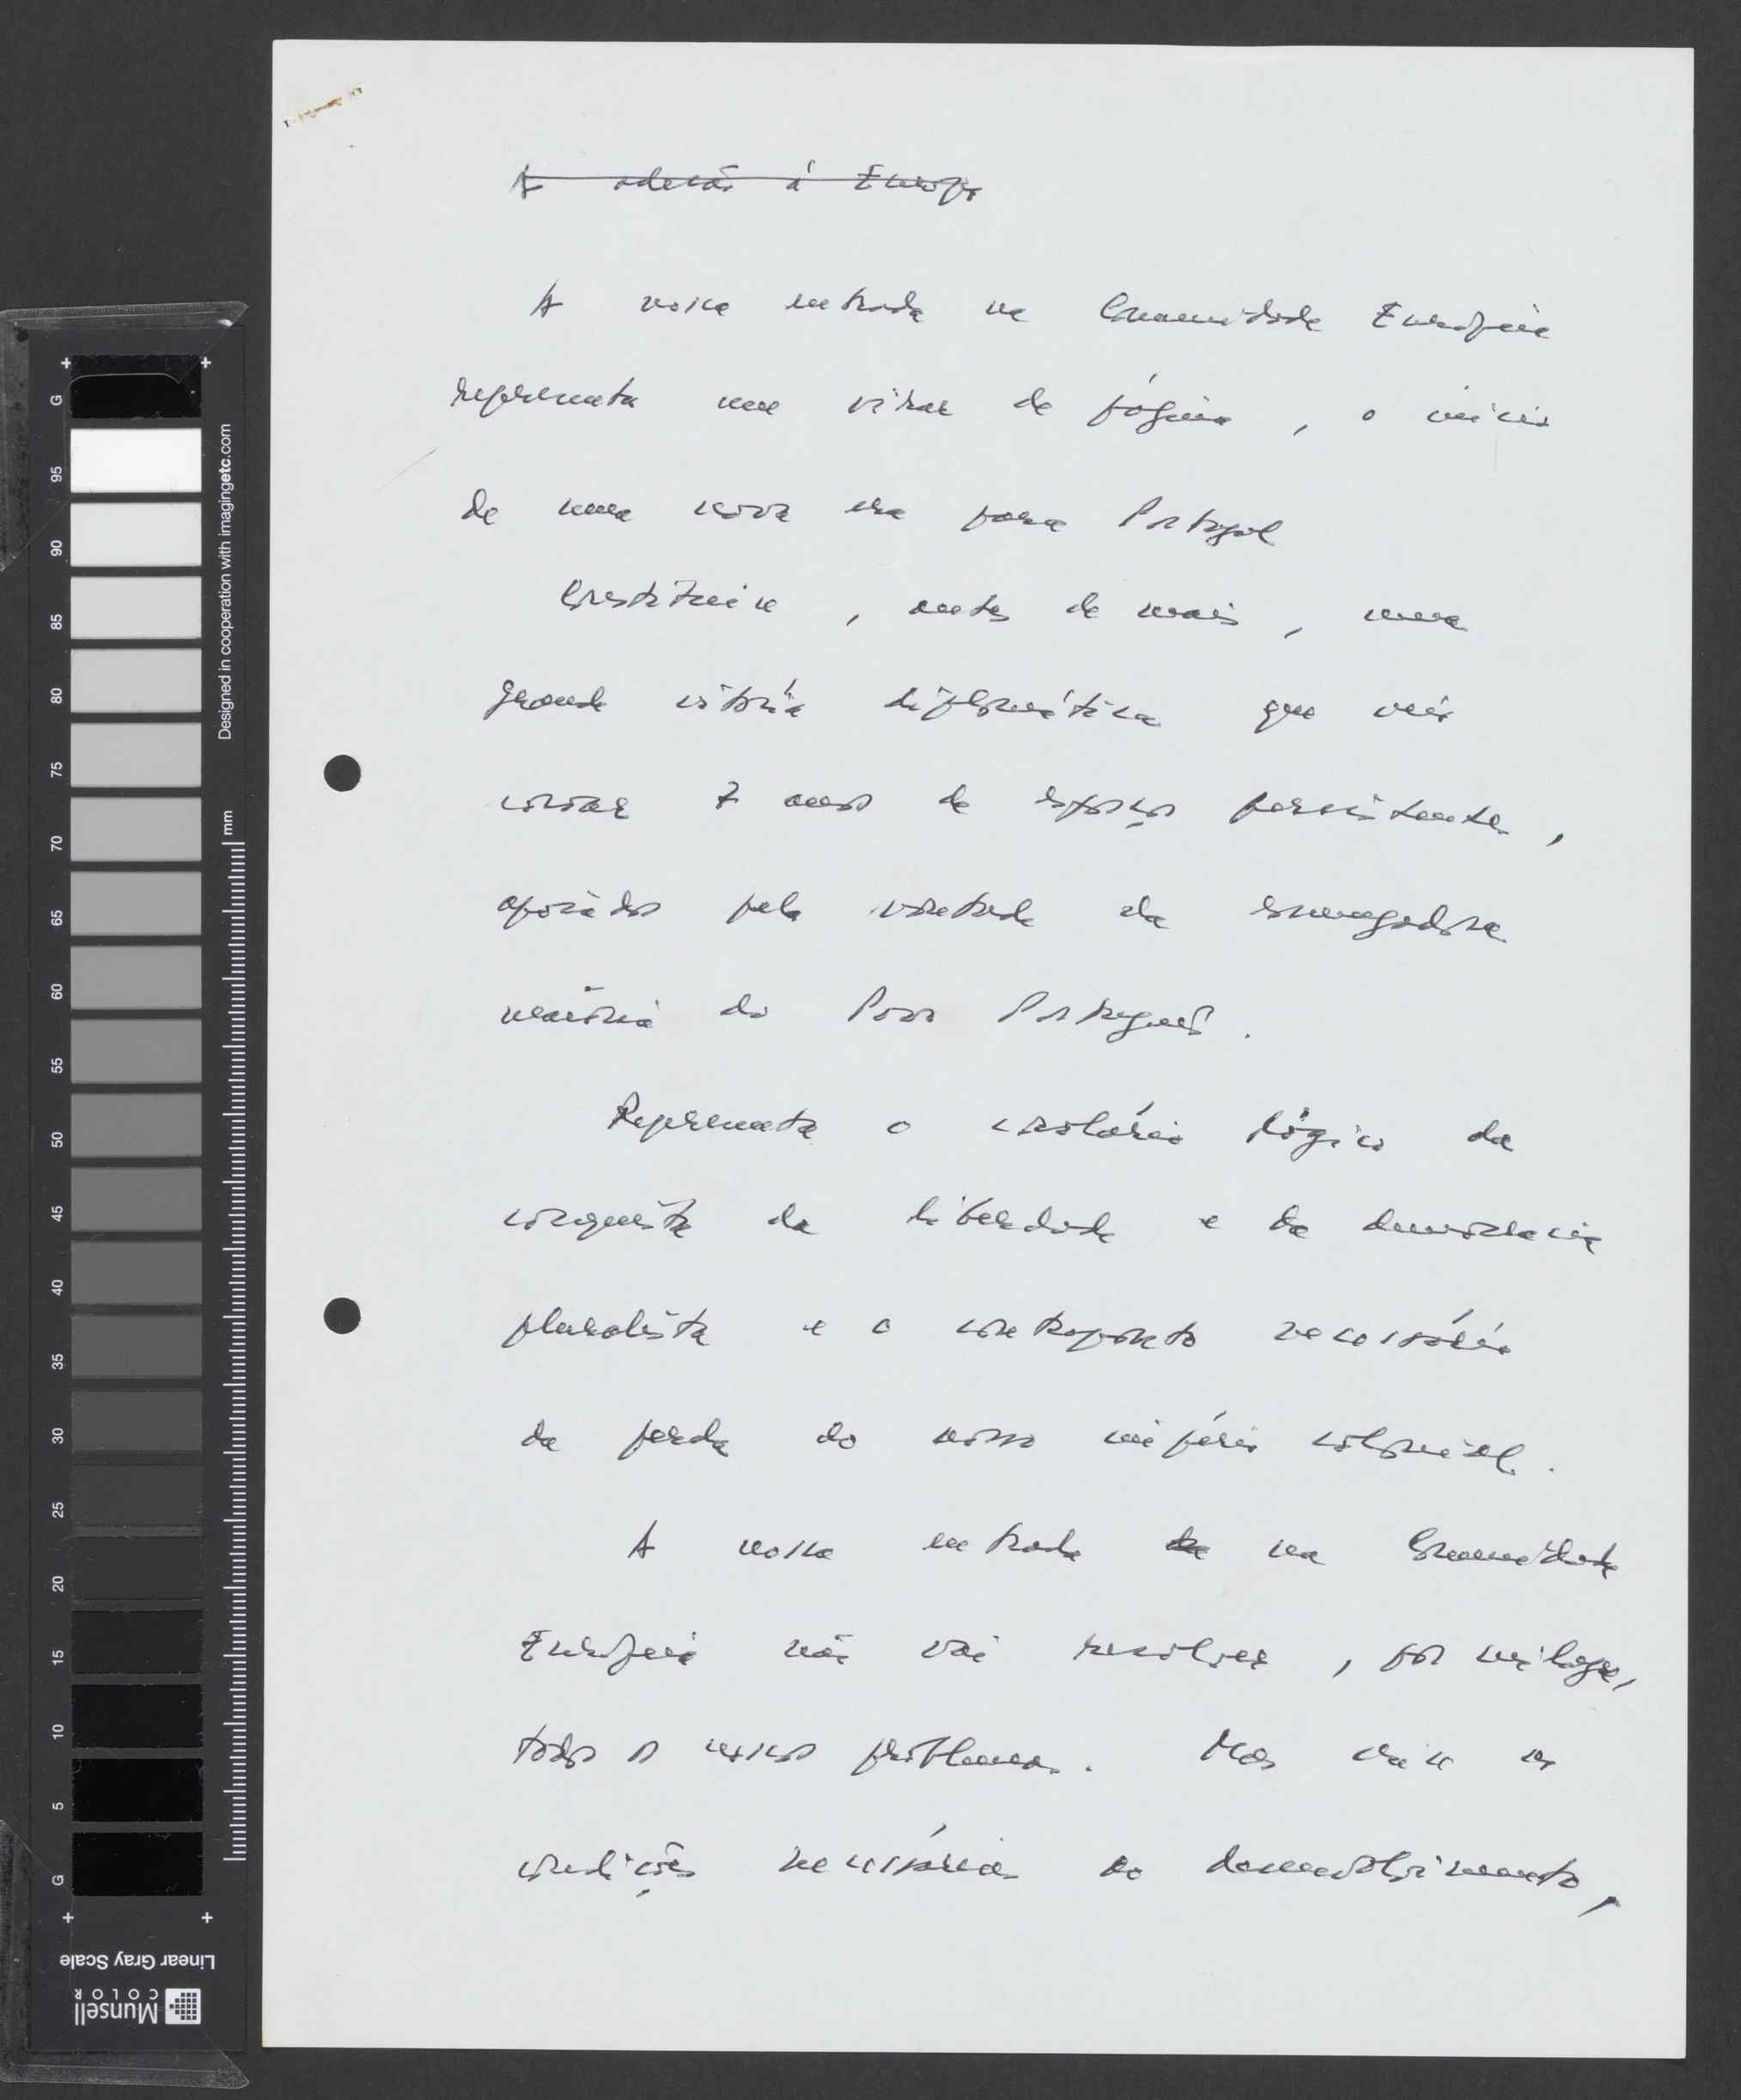 A adesão à Europa
A nossa entrada na Comunidade Europeia
representa um virar de página, o início
de uma nova era para Portugal
Constitui, antes de mais, uma
grande vitória diplomática que veio
coroar 7 anos de esforços persistentes,
apoiados pela vontade da esmagadora
maioria do Povo Português.
Representa o corolário lógico da
conquista da liberdade e da democracia
pluralista e o contraponto necessário
da perda do nosso império colonial.
A nossa entrada da na Comunidade
Europeia não vai resolver, por milagre,
todos os nossos problemas. Mas cria as
condições necessárias ao desenvolvimento,
G 95 90 85 80 75 70 65 60 55 50 45 40 35 30 25 20 15 10 5 G
Designed in cooperation with imagingetc.com
mm
Linear Gray Scale
Munsell
COLOR